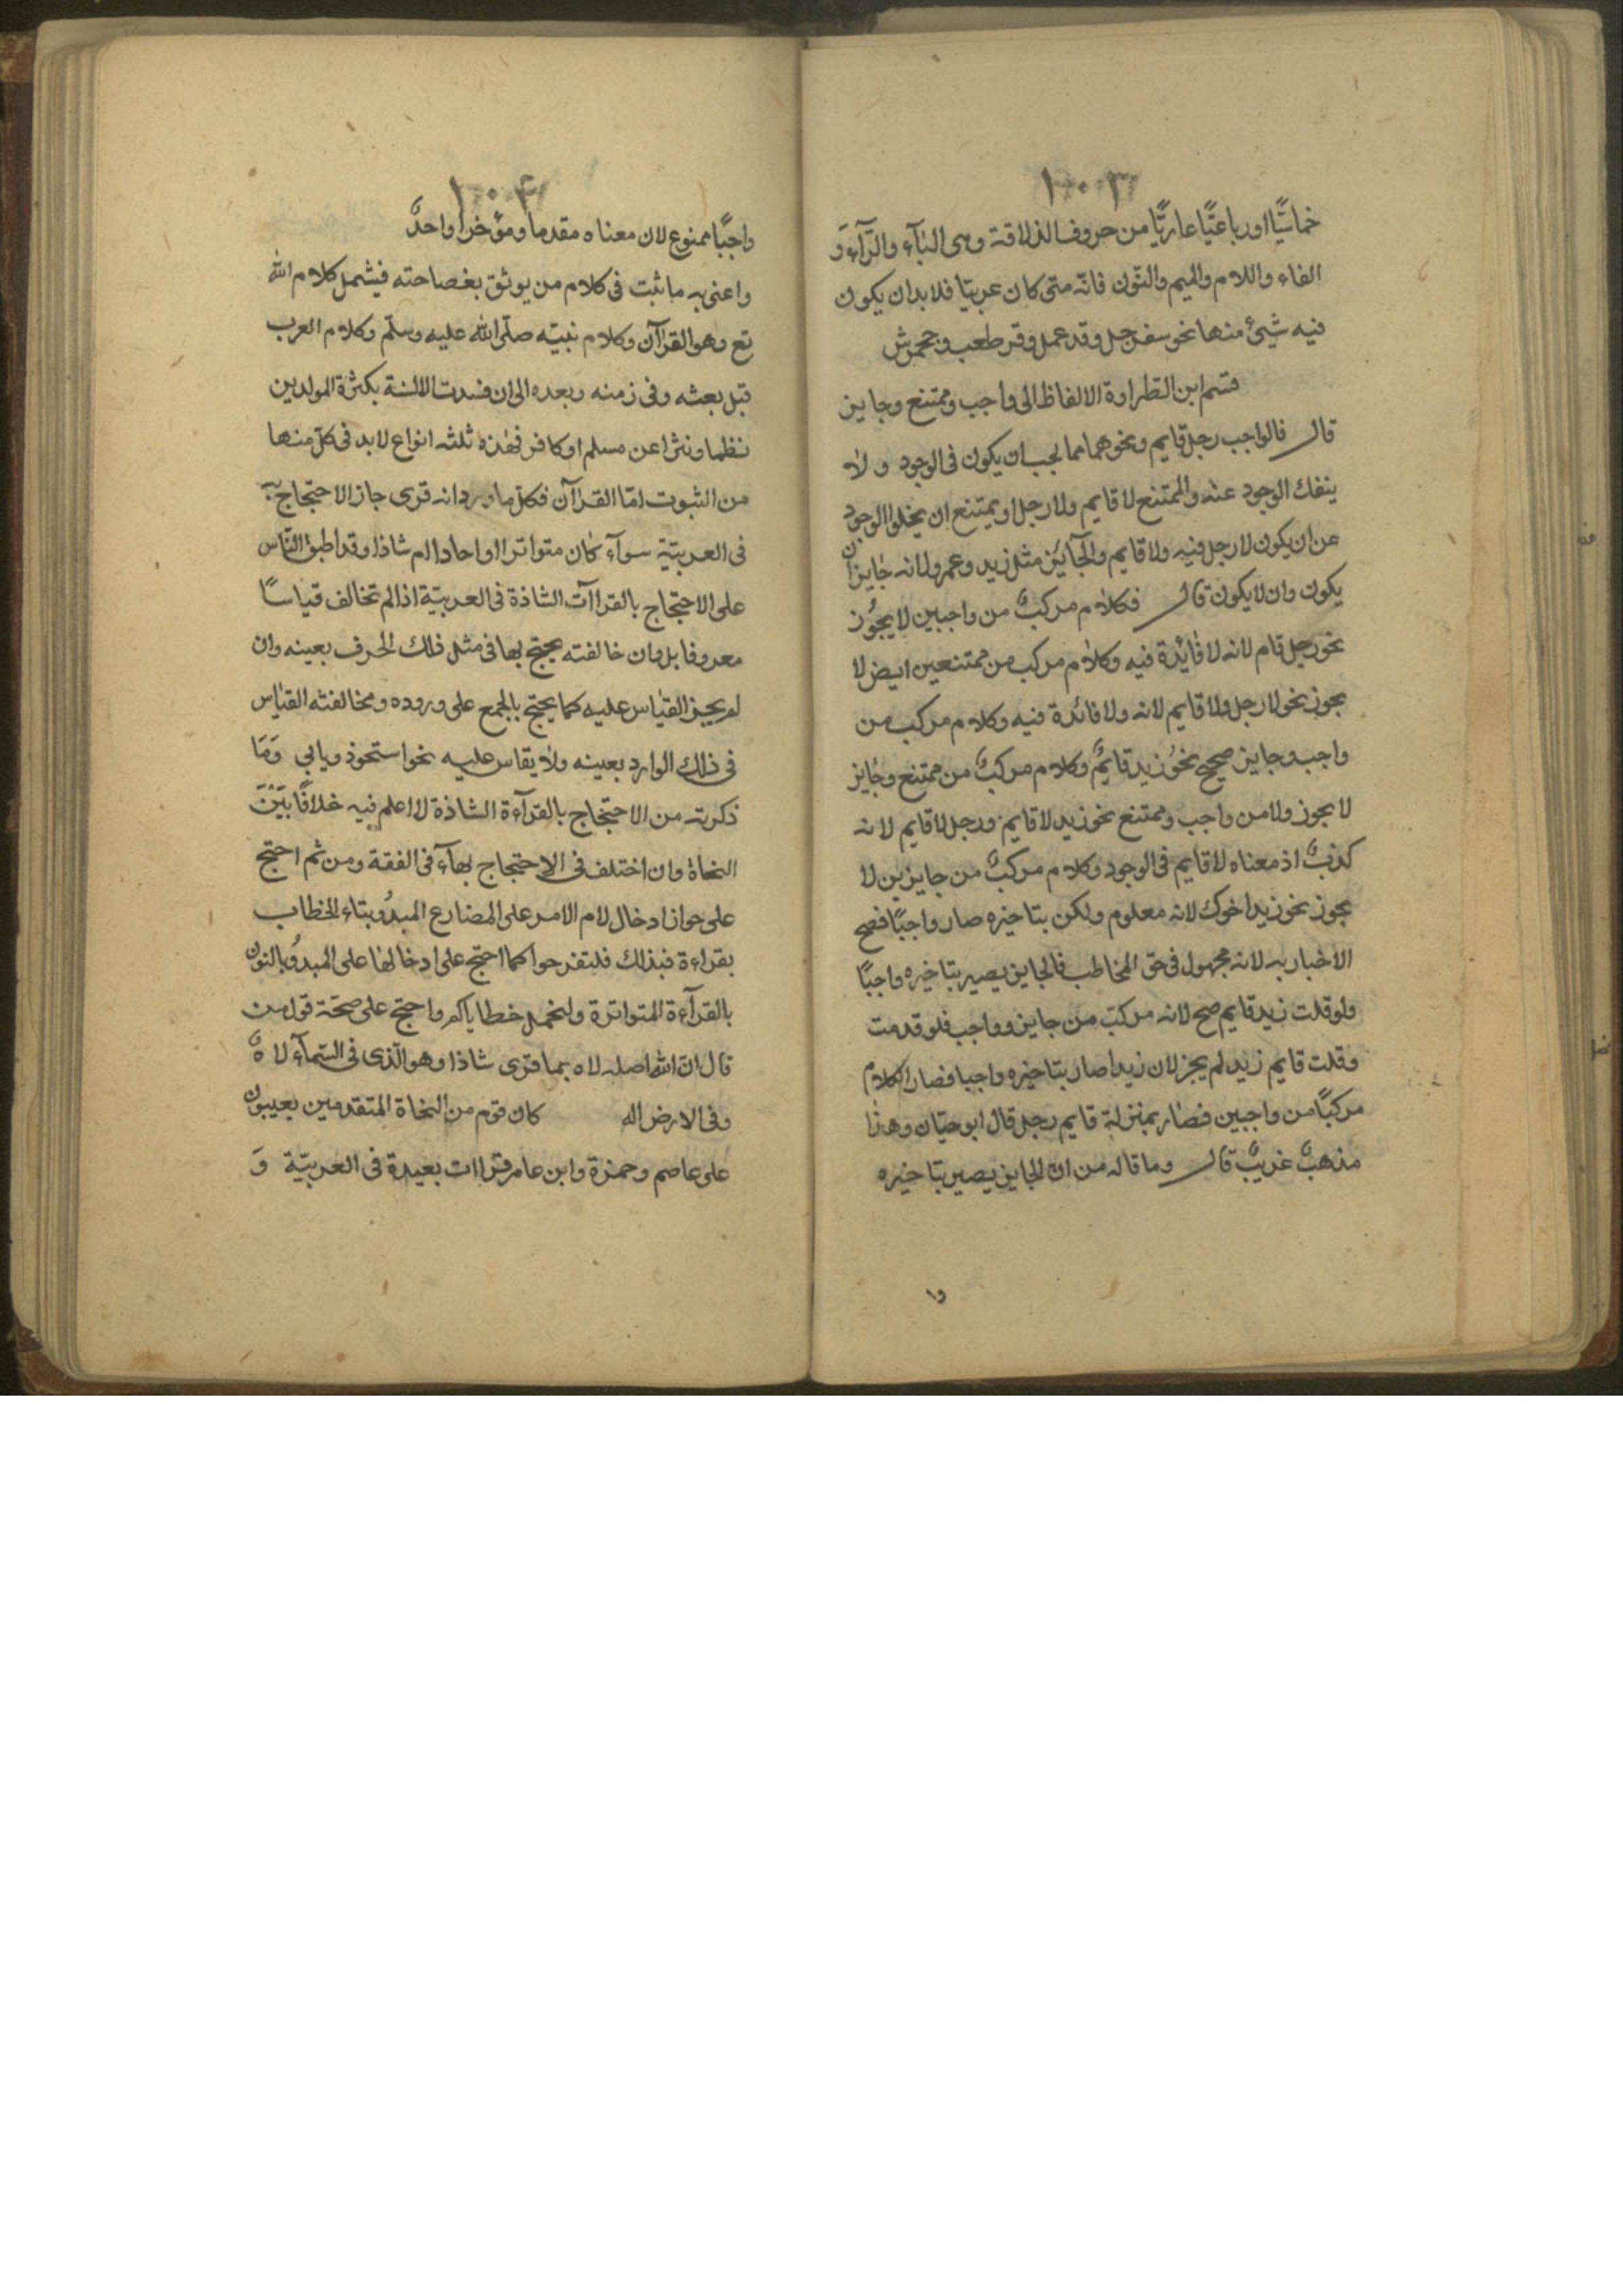 ١٠٠٣
خماسيًّا او رباعيًّا عاريًّا من حروف الذلاقة وهى البآء والرّآء وَ
الفاء واللام والميم والنّون فانّه متى كان عربيّا فلا بدان يكون
فيه شيئ منها نحو سفرجل وقدعمل وقرطعب وجحمرش
قسم ابن الطراوة الالفاظ الى واجب وممتنع وجايز
قال فالواجب رجل قايم ونحوهما مما يجب ان يكون فى الوجود ولا
ينفك الوجود عنه والممتنع لا قايم ولا رجل اويمتنع ان يخلوا الوجود
عن ان يكون لا رجل فيه ولا قايم والجآيز مثل زيد وعمرو لانه جايز ان
يكون وان لا يكون قال فكلام مركبٌ من واجبين لا يجوُز
نحو رجل قام لانه لا فائدة فيه وكلام مركب من ممتنعين ايض لا
يجوز نحو لا رجل ولا قايم لانه ولا فائدة فيه وكلام مركب من
واجب وجايز صحيح نحوُ زيد قايمٌ وكلام مركبٌ من ممتنع وجايز
لا يجوز ولا من واجب وممتنع نحو زيد لا قايم ورجل لا قايم لانه
كذبٌ اذ معناه لا قايم فى الوجود وكلام مركبٌ من جايزين لا
يجوز نحو زيد اخوك لانه معلوم ولكن بتاخيره صار واجبًا فصح
الاخبار به لانه مجهول فى حق المخاطب فالجايز يصير بتاخيره واجبًا
ولو قلت زيد قايم صح لانه مركب من جايز وواجب فلو قدمت
وقلت قايم زيد لم يجز لان زيدا صار بتاخيره واجبا فصار الكلام
مركبًا من واجبين فصار بمنزلة قايم رجل قال ابو حيّان وهذا
مذهبٌ غريبٌ قال وما قاله من ان الجايز يصير بتاخيره
وا
١٠٠٤
واجبًا ممنوع لان معناه مقدما ومؤخرا واحدٌ
واعنى به ما ثبت فى كلام من يوثق بفصاحته فيشمل كلام الله
تع وهو القرآن وكلام نبيّه صلّى الله عليه وسلّم وكلام العرب
قبل بعثه وفى زمنه وبعده الى ان فسدت الالسنة بكثرة المولدين
نظما ونثرا عن مسلم او كافر فهذه ثلثه انواع لا بد فى كلّ منها
من الثبوت امّا القرآن فكلّ ما ورد انه قرى جاز الاحتجاج به
فى العربيّة سوآء كان متواترا او احادا ام شاذا وقد اطبق النّاس
على الاحتجاج بالقراآت الشاذة فى العربيّة اذا لم تخالف قياسًا
معروفا بل وان خالفته يحتج بها فى مثل ذلك الحرف بعينه وان
لم يجز القياس عليه كما يحتج بالمجمع على وروده ومخالفته القياس
فى ذلك الوارد بعينه ولا يقاس عليه نحو استحوذ ويابي وَمَا
ذكرته من الاحتجاج بالقرآءة الشاذة لا اعلم فيه خلافًا بَيْنَ
النحاة وان اختلف فى الاحتجاج بهاء فى الفقة ومن ثم احتج
على جواز ادخال لام الامر على المضارع المبدُو بتاء الخطاب
بقراءة فبذلك فلتفرحوا كما احتج على ادخالها على المبدُو بالنون
بالقرآءة المتواترة ولنحمل خطاياكم واحتج على صحّة قول من
قال انّ الله اصله لاه بما قرى شاذا وهو الّذى فى السّمآء لاهٌ
وفى الارض اله كان قوم من النحاة المتقدمين يعيبون
على عاصم وحمزة وابن عامر قراات بعيدة فى العربيّة وَ